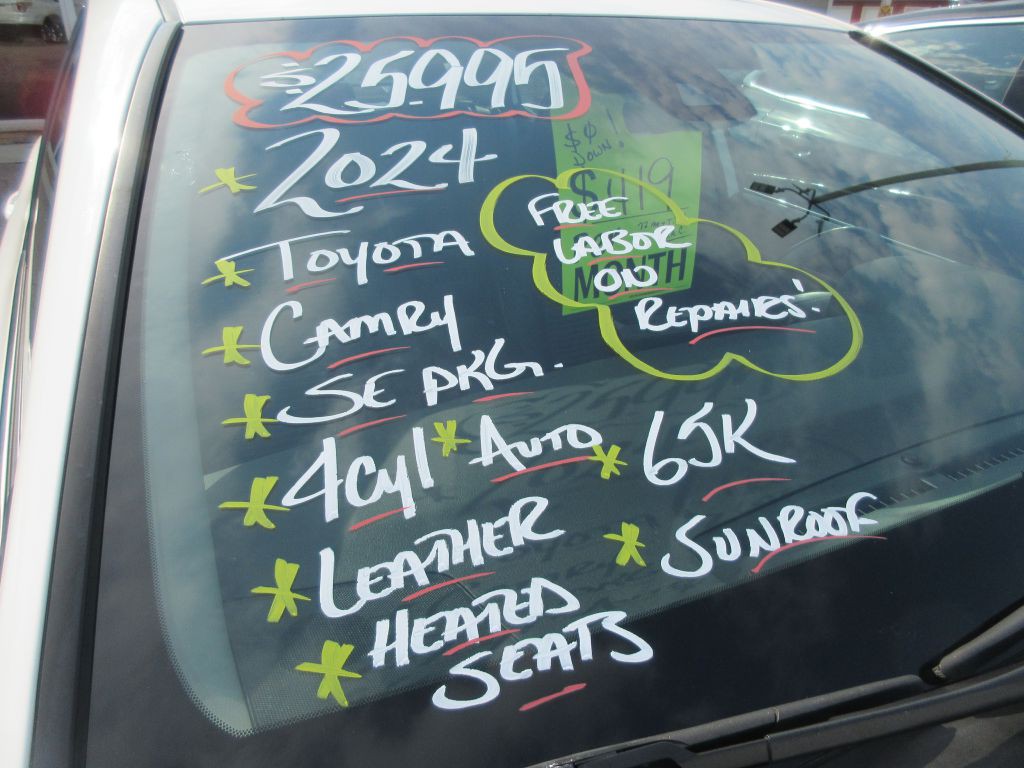 $25.995
2024
TOYOTA
CAMRY
SE PKG.
4Cyl AUTO 65K
LEATHER SUNROOF
HEATED
SEATS
$0
DOWN!
$419
MONTH
FREE
LABOR
ON
REPAIRS!